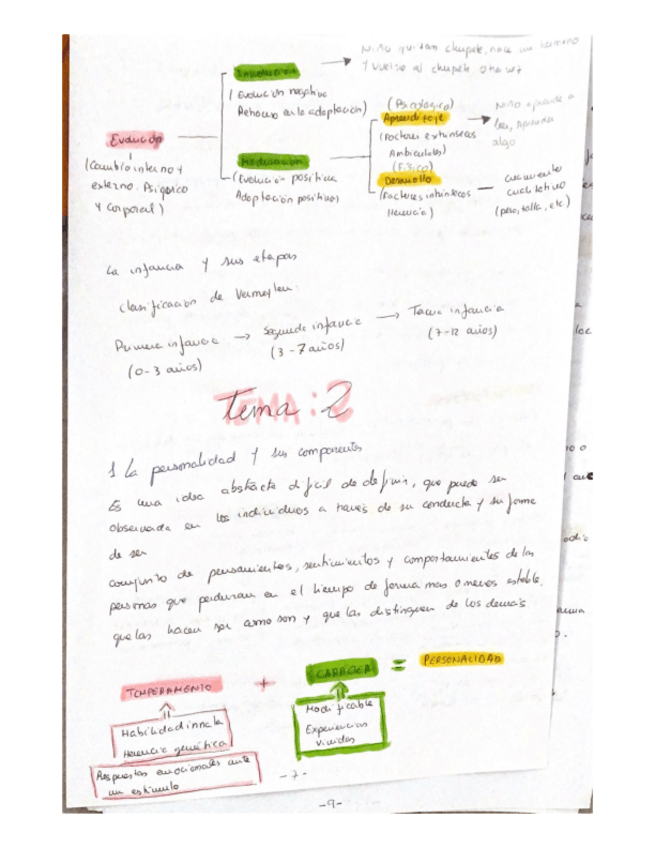 Niño quitan chupete, nace un hermano
y vuelve al chupete otra vez
Involución
(Evolución negativa
Retroceso en la adaptación)
Evolución
(Cambio interno y
externo. Psíquico
y Corporal)
Maduración
(Evolución positiva
Adaptación positiva)
(Psicológico)
Aprendizaje
(Factores extrínsecos
Ambientales)
Niño aprende a
leer, aprender
algo
(Físico)
Desarrollo
(Factores intrínsecos
Herencia)
crecimiento
cuantitativo
(peso, talla, etc.)
La infancia y sus etapas
clasificación de Vermeylen:
Primera infancia → Segunda infancia → Tercera infancia
(0-3 años) (3-7 años) (7-12 años)
Tema: 2
1 La personalidad y sus componentes
Es una idea abstracta difícil de definir, que puede ser
observada en los individuos a través de su conducta y su forma
de ser
conjunto de pensamientos, sentimientos y comportamientes de las
personas que perduran en el tiempo de forma mas o menos estable,
que las hacen ser como son y que las distinguen de los demás
TEMPERAMENTO + CARÁCTER = PERSONALIDAD
Habilidad innata
Herencia genética
Respuestas emocionales ante
un estímulo
Modificable
Experiencias
vividas
-7-
-9-